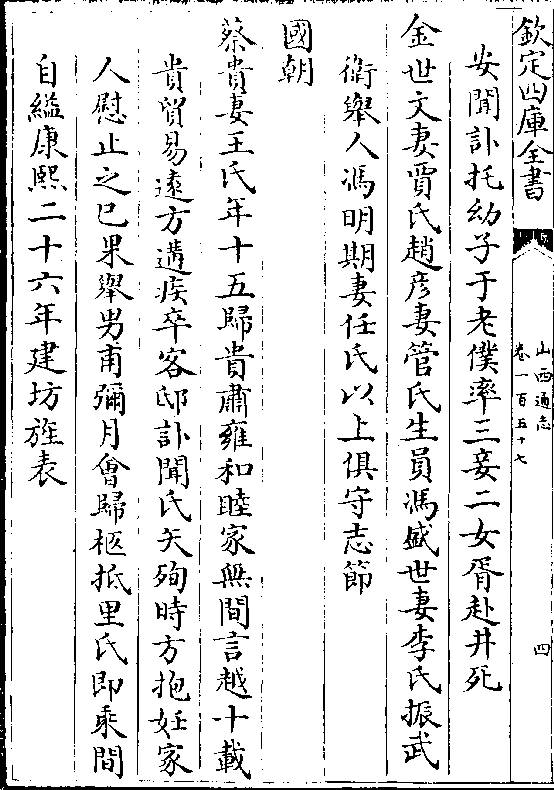 欽定四庫全書
山西通志
卷一百五十七
四
安聞訃托幼子于老僕率三妾二女胥赴井死
金世文妻賈氏趙彥妻管氏生員馮盛世妻李氏振武
衛舉人馮明期妻任氏以上俱守志節
國朝
蔡貴妻王氏年十五歸貴肅雍和睦家無間言越十載
貴貿易遠方遘疾卒客邸訃聞氏矢殉時方抱妊家
人慰止之已果舉男甫彌月會歸柩抵里氏即乘間
自縊康熙二十六年建坊旌表